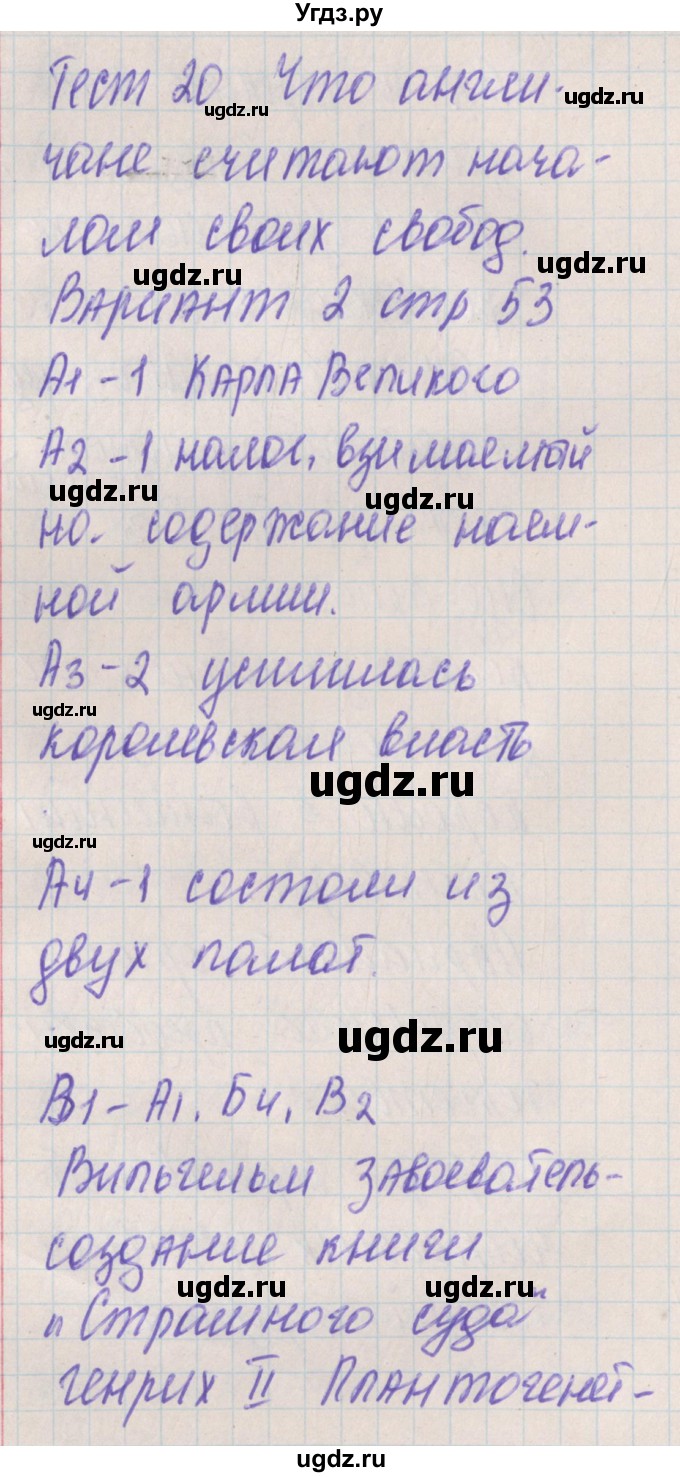 Угдз.ру
Тест 20 Что англи-
ugdz.ru ugdz.ru
чане считают нача-
лом своих свобод.
ugdz.ru ugdz.ru
Вариант 2 стр 53
А1 - 1 Карла Великого
А2 - 1 налог, взимаемый
ugdz.ru ugdz.ru
на содержание наем-
ной армии.
А3 - 2 усилилась
ugdz.ru
королевская власть
ugdz.ru
ugdz.ru
А4 - 1 состоял из
двух палат.
ugdz.ru ugdz.ru
В1 - А1, Б4, В2
Вильгельм Завоеватель-
создание книги
ugdz.ru ugdz.ru
"Страшного суда"
генрих II Плантогенет-
ugdz.ru